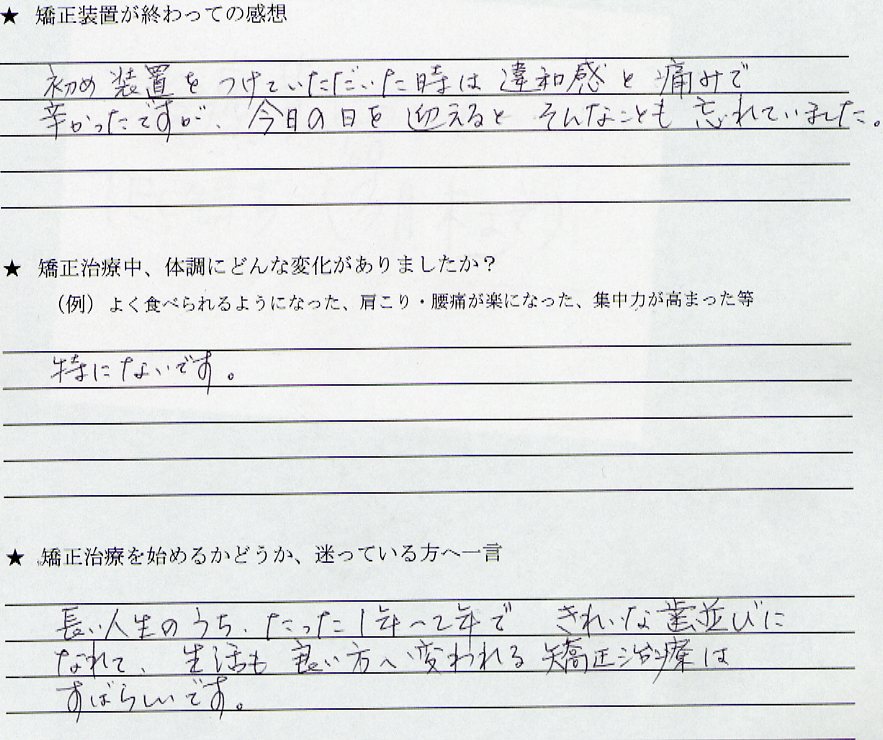 ★ 矯正装置が終わっての感想
初め装置をつけていただいた時は違和感と痛みで
辛かったですが、今日の日を迎えるとそんなことも忘れていました。
★ 矯正治療中、体調にどんな変化がありましたか？
（例）よく食べられるようになった、肩こり・腰痛が楽になった、集中力が高まった等
特にないです。
★ 矯正治療を始めるかどうか、迷っている方へ一言
長い人生のうち、たった1年〜2年で きれいな歯並びに
なれて、生活も良い方へ変われる矯正治療は
すばらしいです。